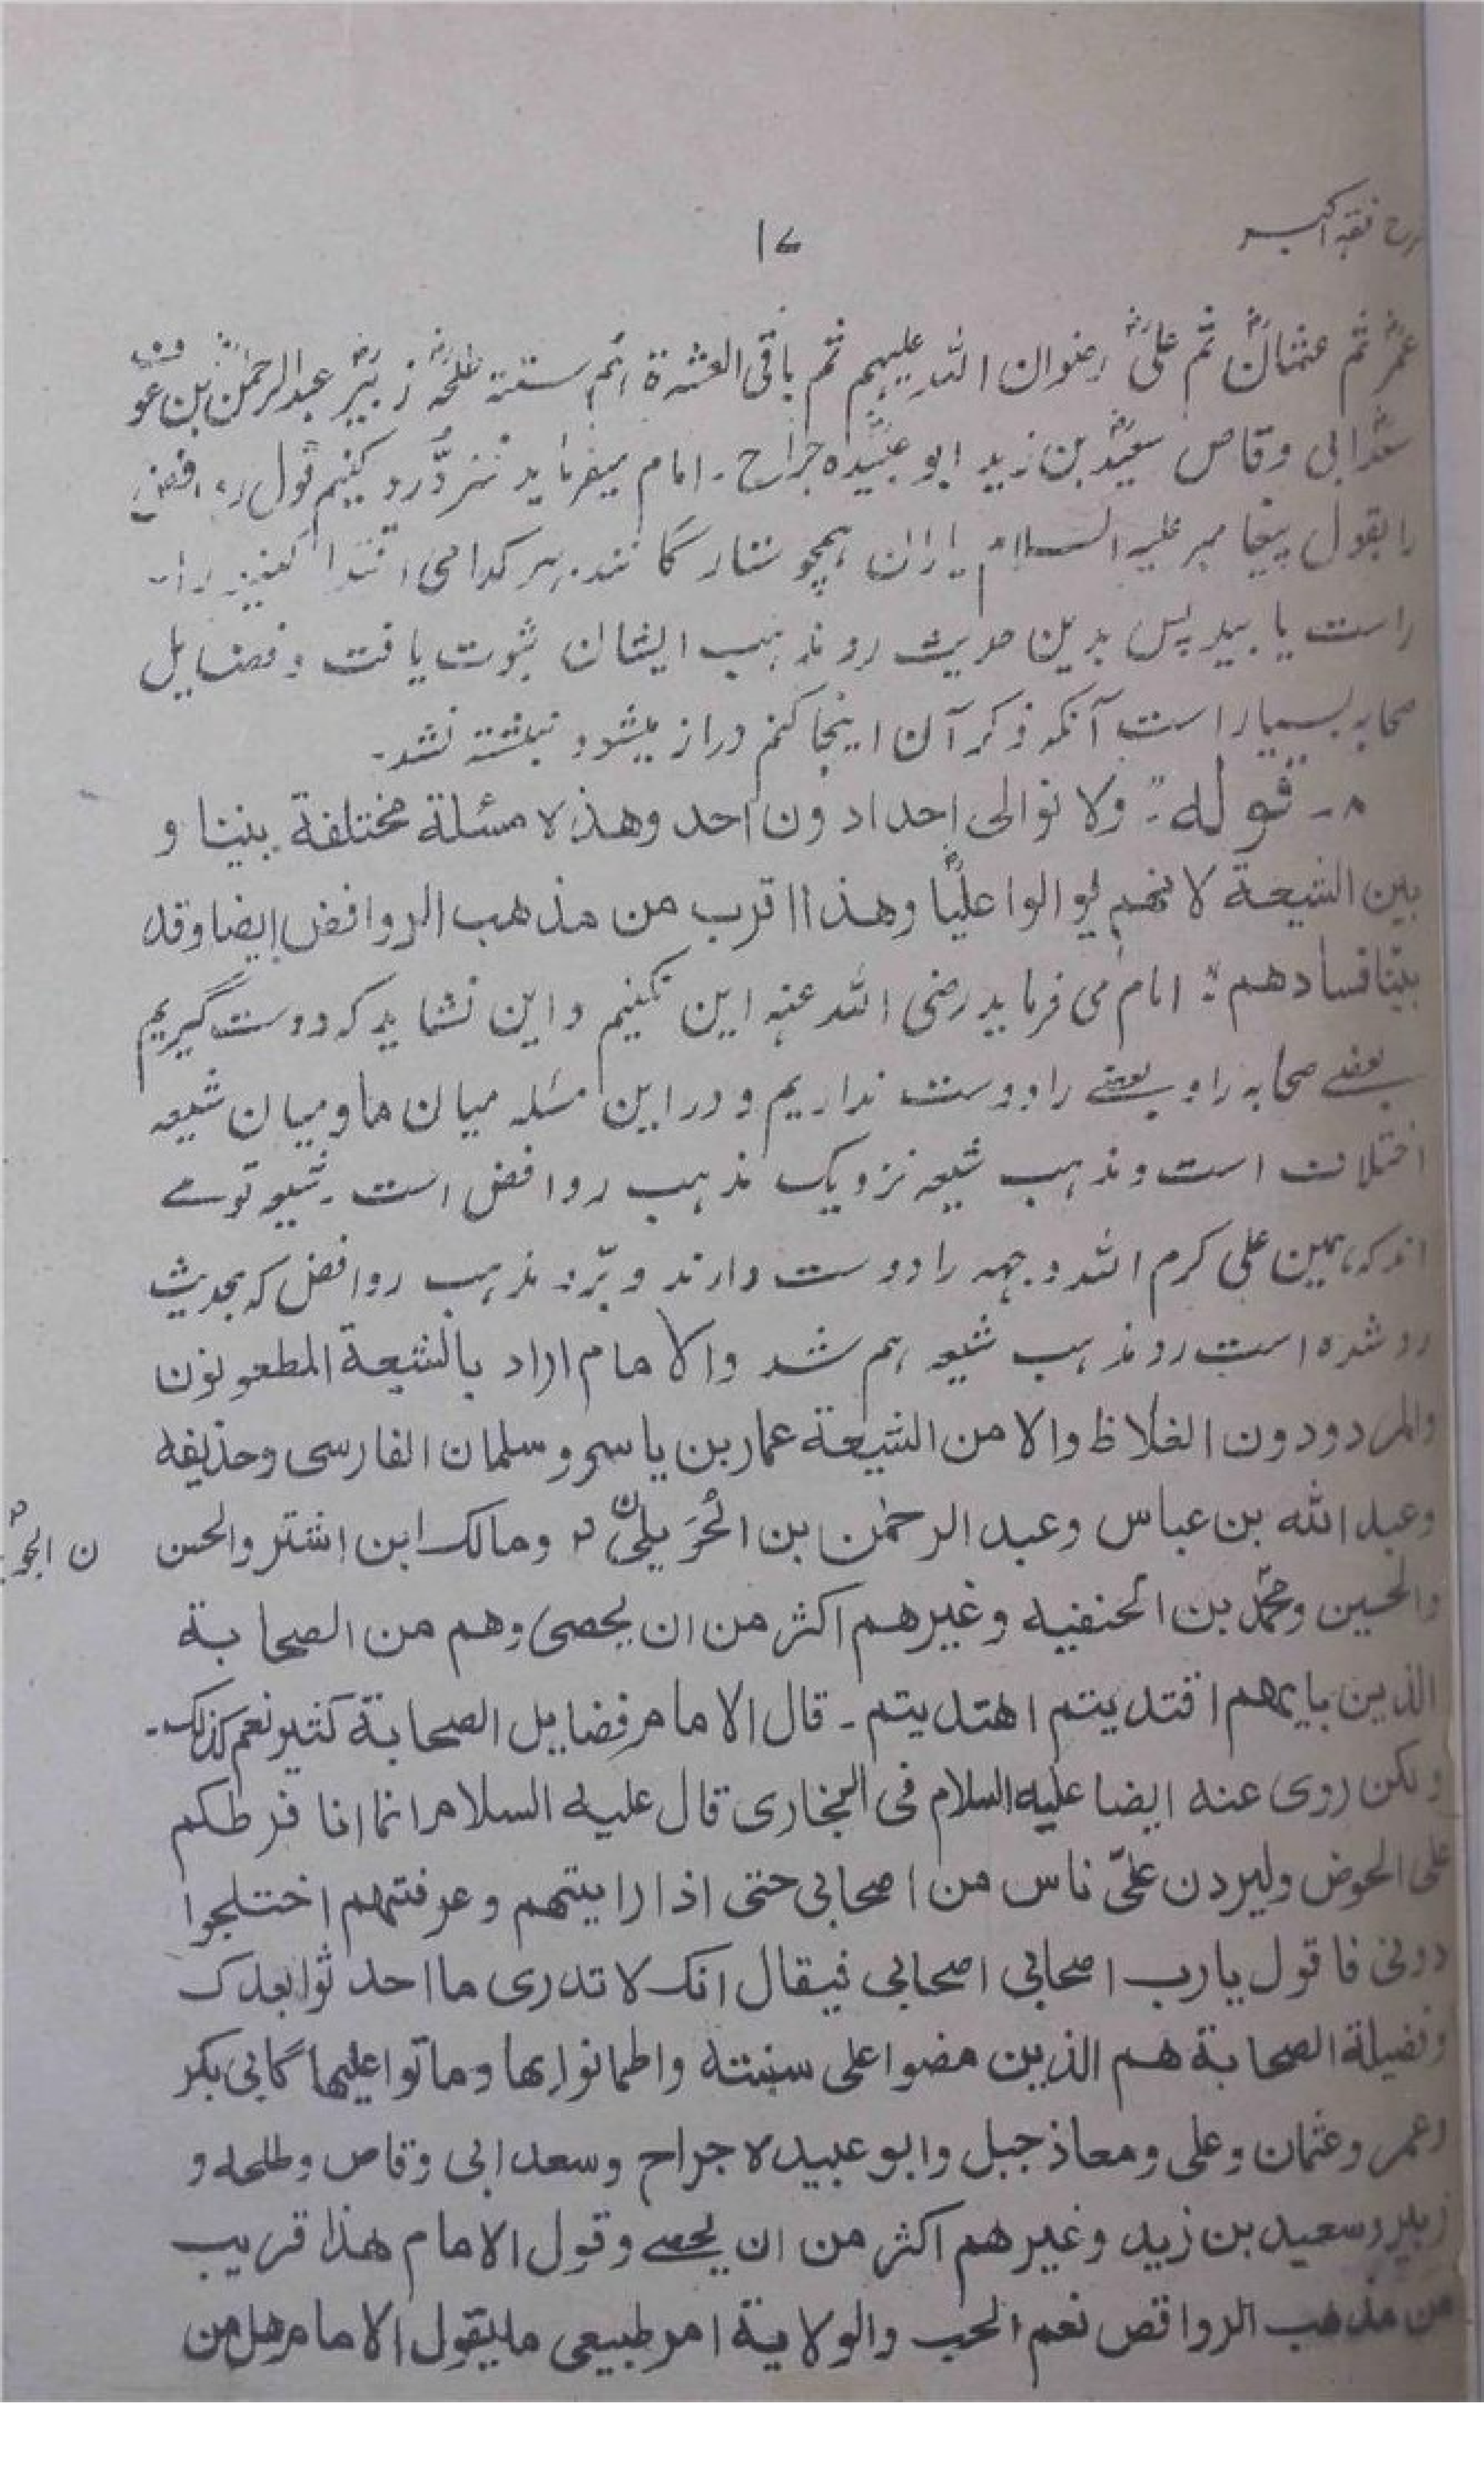 شرح فقه اكبر
۱۷
عمرؓ ثم عثمانؓ ثم علیؓ رضوان اللہ علیہم ثم باقی العشرة ائم ستته طلحہؓ زبیرؓ عبد الرحمٰن بن عوف
سعدؓ ابی وقاص سعیدؓ بن زید ابو عبیدہؓ جراح ۔ امام میفرماید رد کنیم قول روافض
را بقول پیغامبر علیہ السلام یاران ہمچو ستارگانند ہر کدامی اقتدا کنید راہ
راست یابید پس بدین حدیث رد مذہب ایشان ثبوت یافت و فضایل
صحابہ بسیار است آنکه ذکر آن اینجا کنم دراز میشود نبشته نشد ۔
۸ ۔ قوله :۔ ولا نوالی احدا دون احد وهذه مسئلة مختلفة بیننا و
بین الشیعة لانهم یوالوا علیًّا وهذا اقرب من مذهب الروافض ایضا وقد
بیّنا فسادهم ؛ امام می فرماید رضی اللہ عنہ این نکنیم و این نشاید کہ دوست گیریم
بعضے صحابہ را و بعضے را دوست نداریم و در این مسئلہ میان ما و میان شیعہ
اختلاف است و مذہب شیعہ نزدیک مذہب روافض است ۔ شیعہ قومے
اند کہ ہمین علی کرم اللہ وجہہ را دوست دارند و برّد مذہب روافض کہ بحدیث
رد شده است رد مذہب شیعہ ہم شد والامام اراد بالشیعة المطعونون
والمردودون الغلاظ والا من الشیعة عمار بن یاسر وسلمان الفارسی وحذیفه
وعبد الله بن عباس وعبد الرحمٰن بن الحُوَیلیّ ومالک ابن اشتر والحسن
والحسین ومحمّد بن الحنفیه وغیرهم اکثر من ان یحصی وهم من الصحابة
الذین بایهم اقتدیتم اهتدیتم ۔ قال الامام فضایل الصحابة کثیر نعم کذلک ۔
ولکن روی عنه ایضا علیه السلام فی البخاری قال علیه السلام انما انا فرطکم
علی الحوض ولیردن علیّ ناس من اصحابی حتی اذا رایتهم وعرفتهم اختلجوا
دونی فاقول یارب اصحابی اصحابی فیقال انک لا تدری ما احدثوا بعدک
وفضیلة الصحابة هم الذین مضوا علی سنته واطمانوا بها وماتوا علیها کابی بکر
وعمر وعثمان وعلی ومعاذ جبل وابو عبیده جراح وسعد ابی وقاص وطلحه و
زبیر وسعید بن زید وغیرهم اکثر من ان یحصے وقول الامام هذا قریب
من مذهب الروافض نعم الحب والولایة امر طبیعی ما یقول الامام هل من